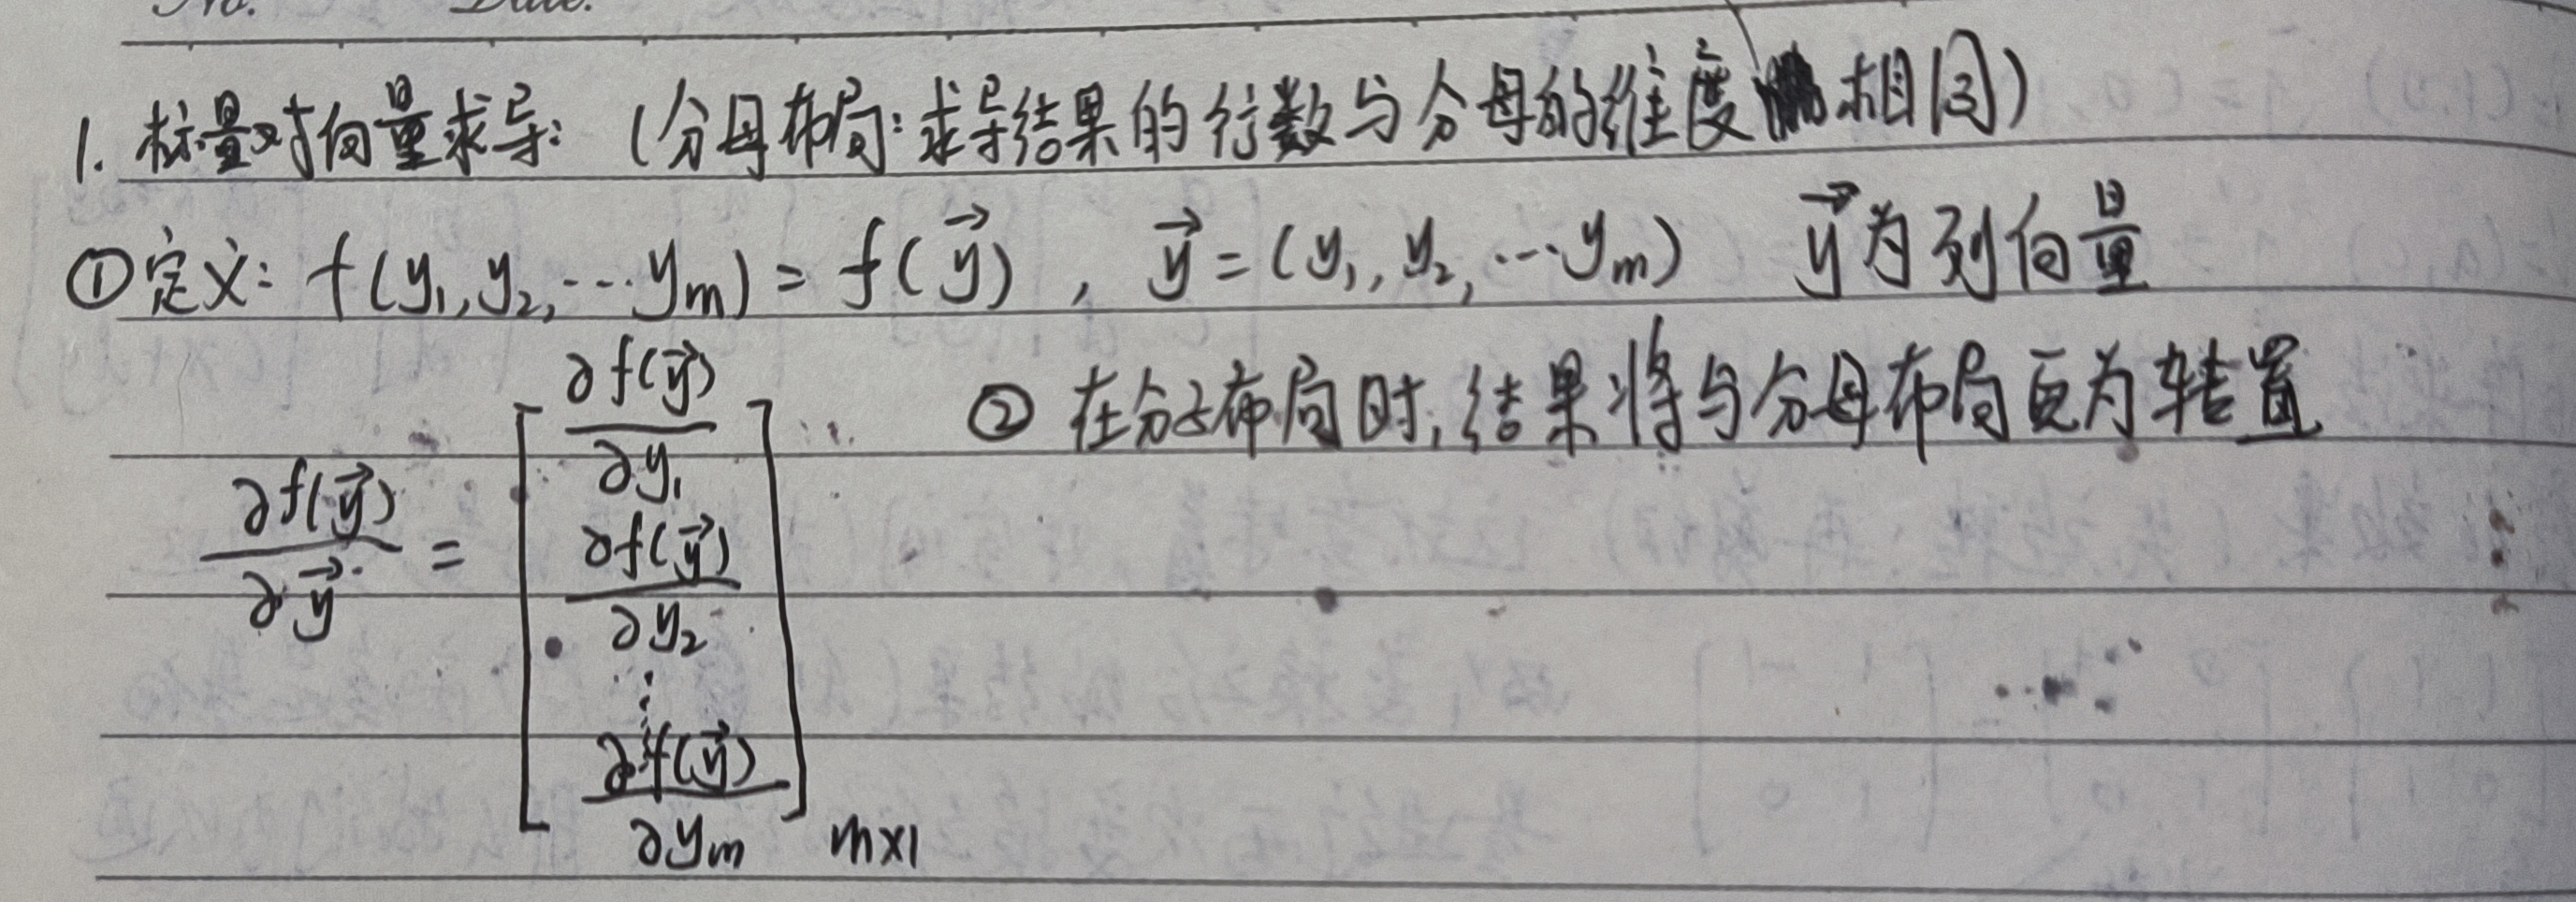 No. Date.
1. 标量对向量求导: (分母布局: 求导结果的行数与分母的维度相同)
①定义: f(y₁,y₂,…yₘ) = f(y⃗) , y⃗ = (y₁, y₂, …yₘ) y⃗为列向量
∂f(y⃗)/∂y⃗ = [∂f(y⃗)/∂y₁ ∂f(y⃗)/∂y₂ ⋮ ∂f(y⃗)/∂yₘ] m×1
② 在分子布局时,结果将与分母布局互为转置